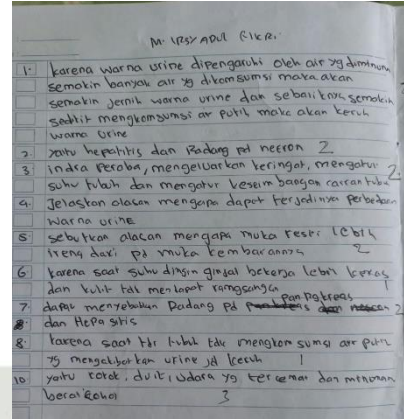 M. IRSYADUL FIKRI.
1. karena warna urine dipengaruhi oleh air yg diminum
semakin banyak air yg dikomsumsi maka akan
semakin jernih warna urine dan sebaliknya, semakin
sedikit mengkomsumsi air putih maka akan keruh
warna urine
2. yaitu hepatitis dan Radang pd nefron 2
3 indra peroba, mengeluarkan keringat, mengatur
suhu tubuh dan mengatur keseimbangan cairan tubuh 2
4. Jelaskan alasan mengapa dapat terjadinya perbedaan
warna urine
5 sebutkan alasan mengapa muka resti lebih
ireng dari pd muka kembarannya 2
6 karena saat suhu dingin ginjal bekerja lebih keras
dan kulit tdk mendapat rangsangan 1
7. dapat menyebabkan Radang pd pankreas 2
8. dan Hepatitis
8. karena saat tdr tubuh tdk mengkomsumsi air putih
yg mengakibatkan urine jd keruh 1
10 yaitu rokok, duit, udara yg tercemar dan minuman
beralkohol 3